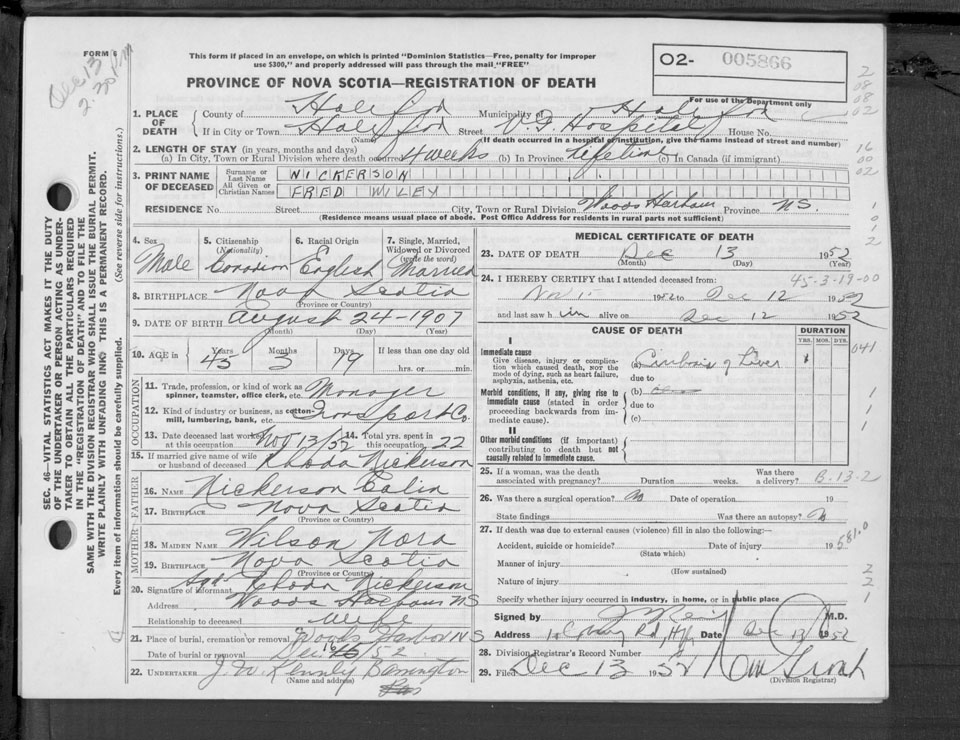 FORM 6
Dec 13
2.30 pm
This form if placed in an envelope, on which is printed "Dominion Statistics—Free, penalty for improper
use $300," and properly addressed will pass through the mail "FREE"
O2- 005866
For use of the Department only
PROVINCE OF NOVA SCOTIA—REGISTRATION OF DEATH
1. PLACE OF DEATH County of Halifax Municipality of Halifax
If in City or Town Halifax Street V.G. Hospital House No.
(Name) (If death occurred in a hospital or institution, give the name instead of street and number)
2. LENGTH OF STAY (in years, months and days)
(a) In City, Town or Rural Division where death occurred 4 weeks (b) In Province Lifetime (c) In Canada (if immigrant)
3. PRINT NAME OF DECEASED Surname or Last Name NICKERSON
All Given or Christian Names FRED WILEY
RESIDENCE No. Street City, Town or Rural Division Woods Harbour Province N.S.
(Residence means usual place of abode. Post Office Address for residents in rural parts not sufficient)
4. Sex Male
5. Citizenship (Nationality) Canadian
6. Racial Origin English
7. Single, Married, Widowed or Divorced (write the word) Married
8. BIRTHPLACE Nova Scotia
(Province or Country)
9. DATE OF BIRTH August 24-1907
(Month) (Day) (Year)
10. AGE in Years 45 Months 3 Days 19 If less than one day old hrs. or min.
OCCUPATION
11. Trade, profession, or kind of work as spinner, teamster, office clerk, etc. Manager
12. Kind of industry or business, as cotton-mill, lumbering, bank, etc. Transport Co.
13. Date deceased last worked at this occupation Nov 13/52 14. Total yrs. spent in this occupation 22
15. If married give name of wife or husband of deceased Rhoda Nickerson
FATHER
16. NAME Nickerson Colin
17. BIRTHPLACE Nova Scotia
(Province or Country)
MOTHER
18. MAIDEN NAME Wilson Nora
19. BIRTHPLACE Nova Scotia
(Province or Country)
20. Signature of informant Sgd Rhoda Nickerson
Address Woods Harbour NS
Relationship to deceased Wife
21. Place of burial, cremation or removal Woods Harbor N S
Date of burial or removal Dec 16/52
22. UNDERTAKER J. W. Kennly Barrington
(Name and address)
MEDICAL CERTIFICATE OF DEATH
23. DATE OF DEATH Dec 13 1952
(Month) (Day) (Year)
45-3-19-00
24. I HEREBY CERTIFY that I attended deceased from:
Nov 1952 to Dec 12 1952
and last saw him alive on Dec 12 1952
CAUSE OF DEATH DURATION
YRS. MOS. DYS.
I
Immediate cause
Give disease, injury or complication which caused death, not the mode of dying, such as heart failure, asphyxia, asthenia, etc.
(a) Cirrhosis of Liver 1
due to
041
Morbid conditions, if any, giving rise to immediate cause (stated in order proceeding backwards from immediate cause).
(b)
due to
(c)
II
Other morbid conditions (if important) contributing to death but not causally related to immediate cause.
25. If a woman, was the death associated with pregnancy? Duration weeks. Was there a delivery? B-13-2
26. Was there a surgical operation? No Date of operation 19
State findings Was there an autopsy? No
27. If death was due to external causes (violence) fill in also the following:—
Accident, suicide or homicide? Date of injury 19
(State which)
581.0
Manner of injury
(How sustained)
Nature of injury
Specify whether injury occurred in industry, in home, or in public place
Signed by M.D.
Address Rd, Hfx Date Dec 13 1952
28. Division Registrar's Record Number
29. Filed Dec 13 1952
(Division Registrar)
SEC. 46—VITAL STATISTICS ACT MAKES IT THE DUTY
OF THE UNDERTAKER OR PERSON ACTING AS UNDER-
TAKER TO OBTAIN ALL THE PARTICULARS REQUIRED
IN THE "REGISTRATION OF DEATH" AND TO FILE THE
SAME WITH THE DIVISION REGISTRAR WHO SHALL ISSUE THE BURIAL PERMIT.
WRITE PLAINLY WITH UNFADING INK; THIS IS A PERMANENT RECORD.
Every item of information should be carefully supplied. (See reverse side for instructions.)